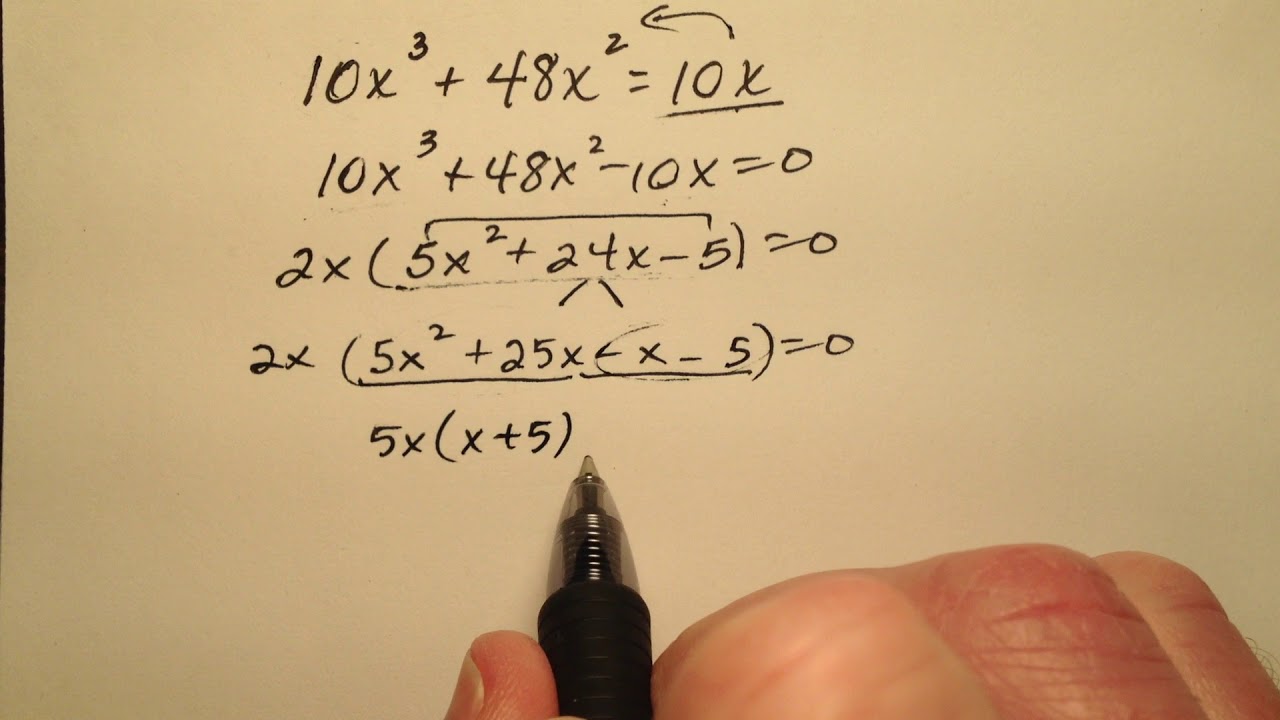 10x³ + 48x² = 10x
10x³ + 48x² - 10x = 0
2x (5x² + 24x - 5) = 0
2x (5x² + 25x - x - 5) = 0
5x(x+5)